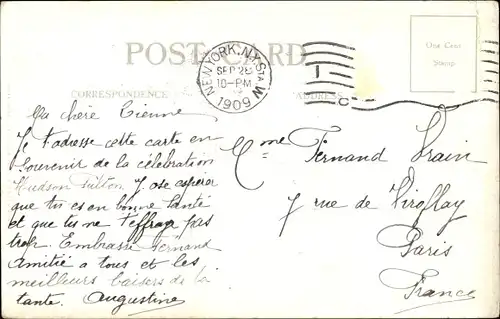 POST CARD
NEW YORK, N.Y. STA W
SEP 28
10-PM
1909
One Cent
Stamp
CORRESPONDENCE
ADDRESS
Ma chère Etienne
Je t'adresse cette carte en
souvenir de la célébration
Hudson Fulton. J'ose espérer
que tu es en bonne santé
et que tu ne t'effraye pas
trop. Embrasse Fernand
amitié a tous et les
meilleurs baisers de la
tante. Augustine
Mme Fernand
7 rue de Viroflay
Paris
France